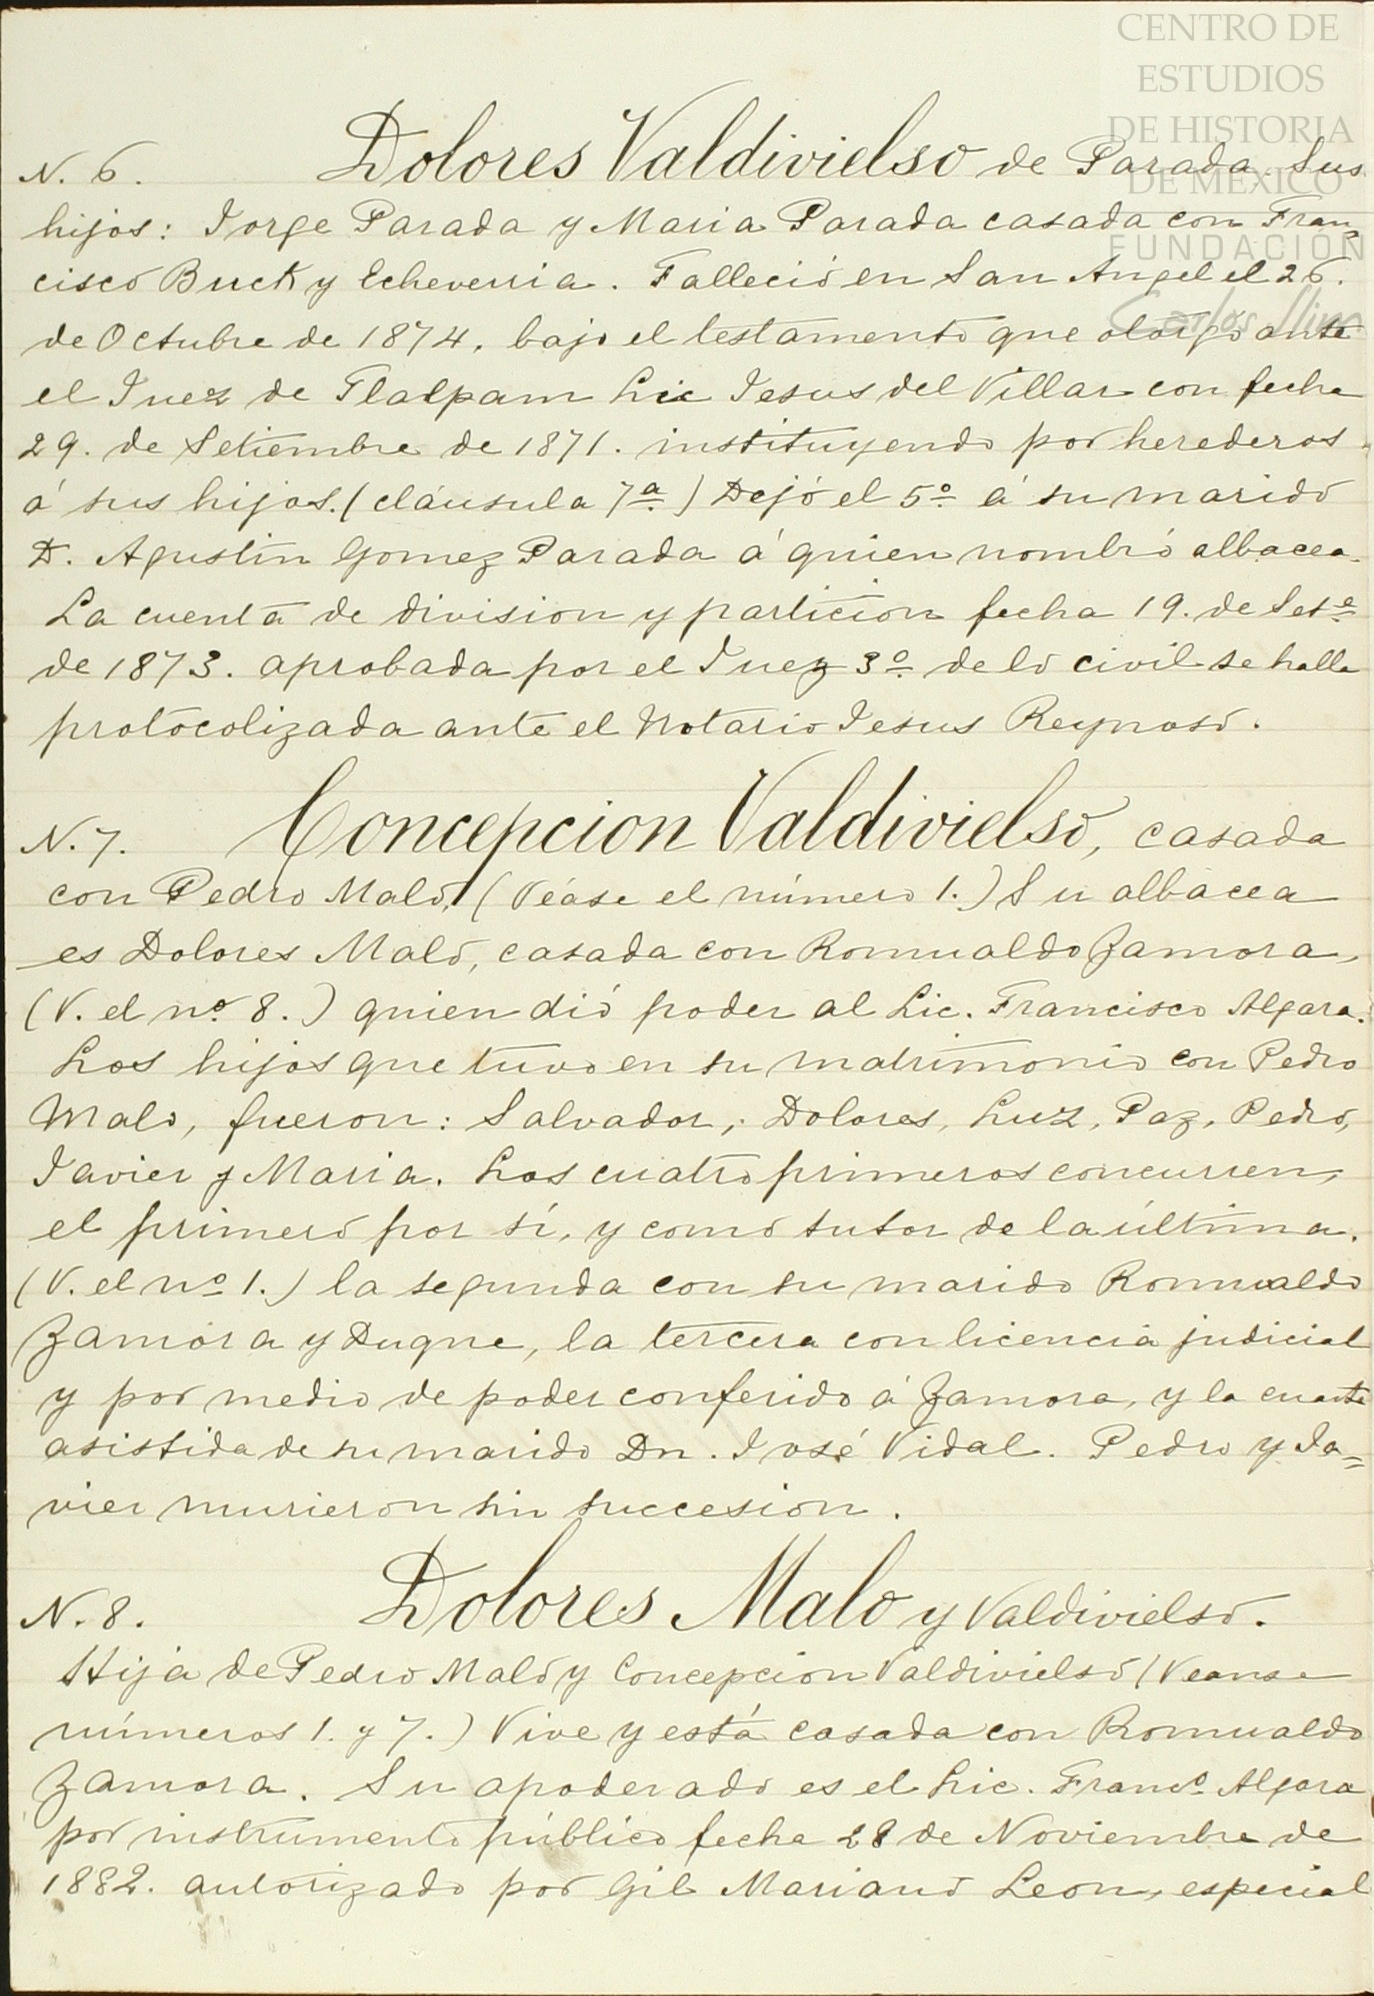 CENTRO DE
ESTUDIOS
DE HISTORIA
DE MÉXICO
FUNDACIÓN
Carlos Slim
N. 6. Dolores Valdivielso de Parada. Sus
hijos: Jorge Parada y Maria Parada casada con Fran=
cisco Buck y Echeverria. Falleció en San Angel el 26.
de Octubre de 1874. bajo el testamento que otorgó ante
el Juez de Tlalpam Lic Jesus del Villar con fecha
29. de Setiembre de 1871. instituyendo por herederos
á sus hijos. (cláusula 7ª) Dejó el 5º á su marido
D. Agustin Gomez Parada á quien nombró albacea.
La cuenta de division y particion fecha 19. de Setᵉ
de 1873. aprobada por el Juez 3º de lo civil se halla
protocolizada ante el Notario Jesus Reynoso.
N. 7. Concepcion Valdivielso, casada
con Pedro Malo, (Véase el número 1.) Su albacea
es Dolores Malo, casada con Romualdo Zamora,
(V. el nº 8.) quien dió poder al Lic. Francisco Algara.
Los hijos que tuvo en su matrimonio con Pedro
Malo, fueron: Salvador, Dolores, Luz, Paz, Pedro,
Javier y Maria. Los cuatro primeros concurren,
el primero por sí, y como tutor de la última.
(V. el nº 1.) la segunda con su marido Romualdo
Zamora y Duque, la tercera con licencia judicial
y por medio de poder conferido á Zamora, y la cuarta
asistida de su marido Dn. José Vidal. Pedro y Ja=
vier murieron sin succesion.
N. 8. Dolores Malo y Valdivielso.
Hija de Pedro Malo y Concepcion Valdivielso (Veanse
números 1. y 7.) Vive y está casada con Romualdo
Zamora. Su apoderado es el Lic. Francº Algara
por instrumento público fecha 28 de Noviembre de
1882. autorizado por Gil Mariano Leon, especial